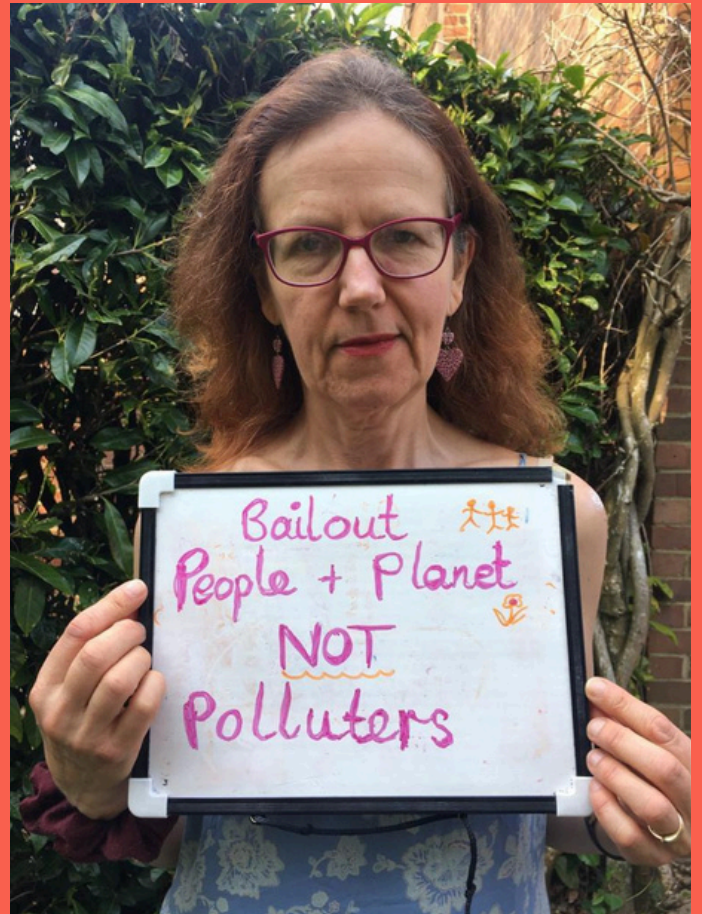 Bailout
People + Planet
NOT
Polluters